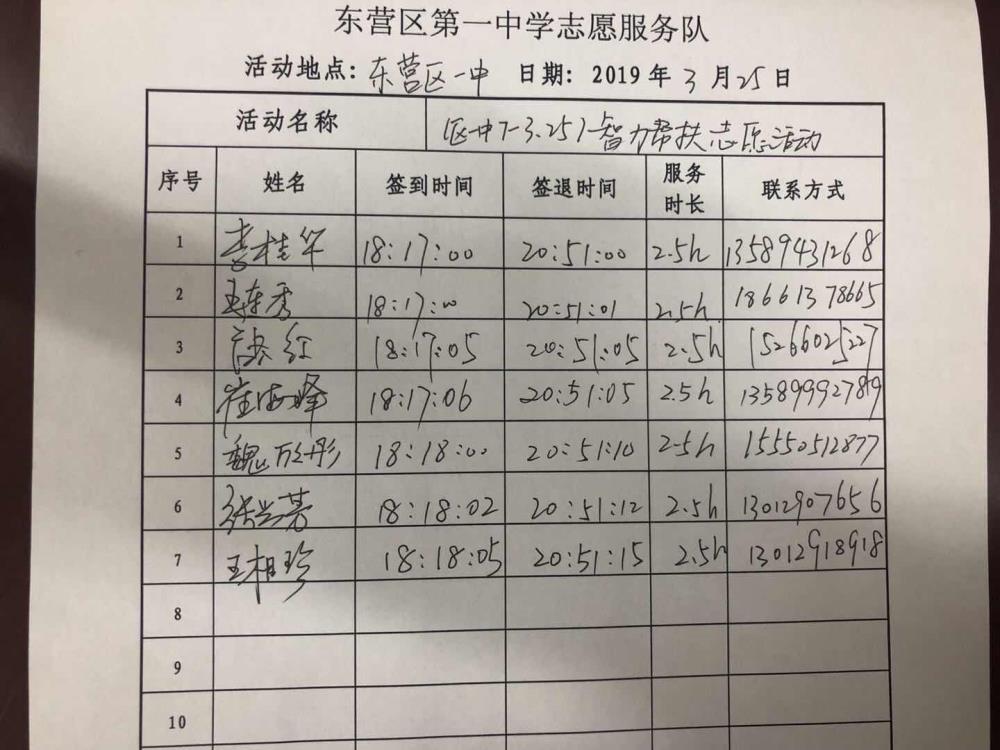 东营区第一中学志愿服务队
活动地点: 东营区一中 日期: 2019 年 3 月 25 日
活动名称 区一中7-3.25)智力帮扶志愿活动
序号 姓名 签到时间 签退时间 服务时长 联系方式
1 李桂华 18:17:00 20:51:00 2.5h 13589431268
2 王连秀 18:17:00 20:51:01 2.5h 18661378665
3 红 18:17:05 20:51:05 2.5h 15266025227
4 崔海峰 18:17:06 20:51:05 2.5h 13589992789
5 魏彤 18:18:00 20:51:10 2.5h 15550512877
6 张兰芳 18:18:02 20:51:12 2.5h 13012907656
7 王相珍 18:18:05 20:51:15 2.5h 13012918918
8
9
10